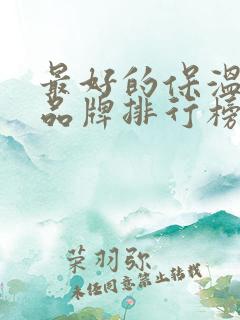 最好的保温
品牌排行榜
荣羽弥
未经同意禁止转载